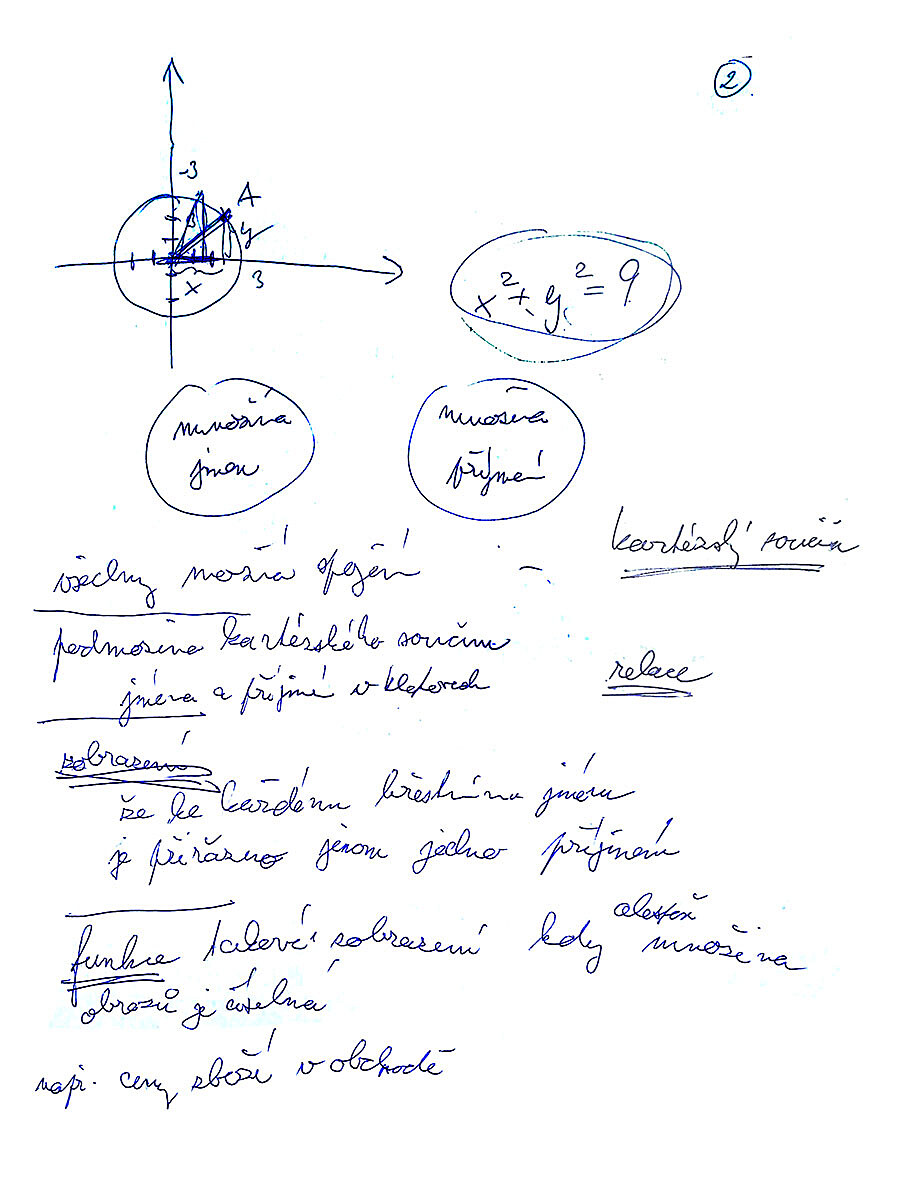 2
3
A
3
y
x
3
x² + y² = 9
množina
jmen
množina
příjmení
všechny možná spojení - kartézský součin
podmnožina kartézského součinu
jména a příjmení v Klatovech
relace
zobrazení
že ke každému křestnímu jménu
je přiřazeno jenom jedno příjmení
funkce taková zobrazení kdy alespoň množina
obrazů je číselná
např. ceny zboží v obchodě